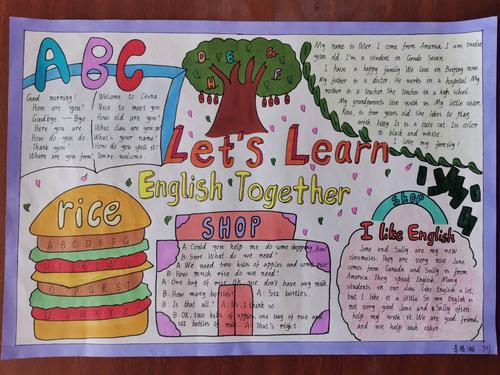 ABC
Good morning!
How are you?
Goodbye — Bye
Here you are.
How do you do.
Thank you
Where are you from?
Welcome to China
Nice to meet you
How old are you?
What class are you in?
What's your name?
How do you spell it?
You're welcome
D E G
H M F
My name is Peter. I come from America. I am twelve
year old. I'm a student in Grade Seven.
I have a happy family. We live in Beijing now.
My father is a doctor. He works in a hospital. My
mother is a teacher. She teaches in a high school.
My grandparents live with us. My little sister,
Rose, is four years old. She likes to play
with kitty. It is a cute cat. Its color
is black and white.
I love my family!
Let's Learn
English Together
rice
A B C D E F G
U V W X Y Z
SHOP
A: Could you help me do some shopping, Ben?
B: Sure. What do we need?
A: We need two kilos of apples and some rice
B: How much rice do we need?
A: One bag of rice. Oh, we don't have any milk
B: How many bottles?
A: Six bottles.
B: Is that all?
A: I think so
B: OK, two kilos of apples, one bag of rice and
six bottles of milk.
A: That's right
SHOP
I like English
Jane and Sally are my new
classmates. They are very nice. Jane
comes from Canada and Sally is from
America. They speak English. Many
students in our class like English a lot,
but I like it a little. So my English is
not very good. Jane and Sally often
help my with it. We are good friends,
and we help each other.
701